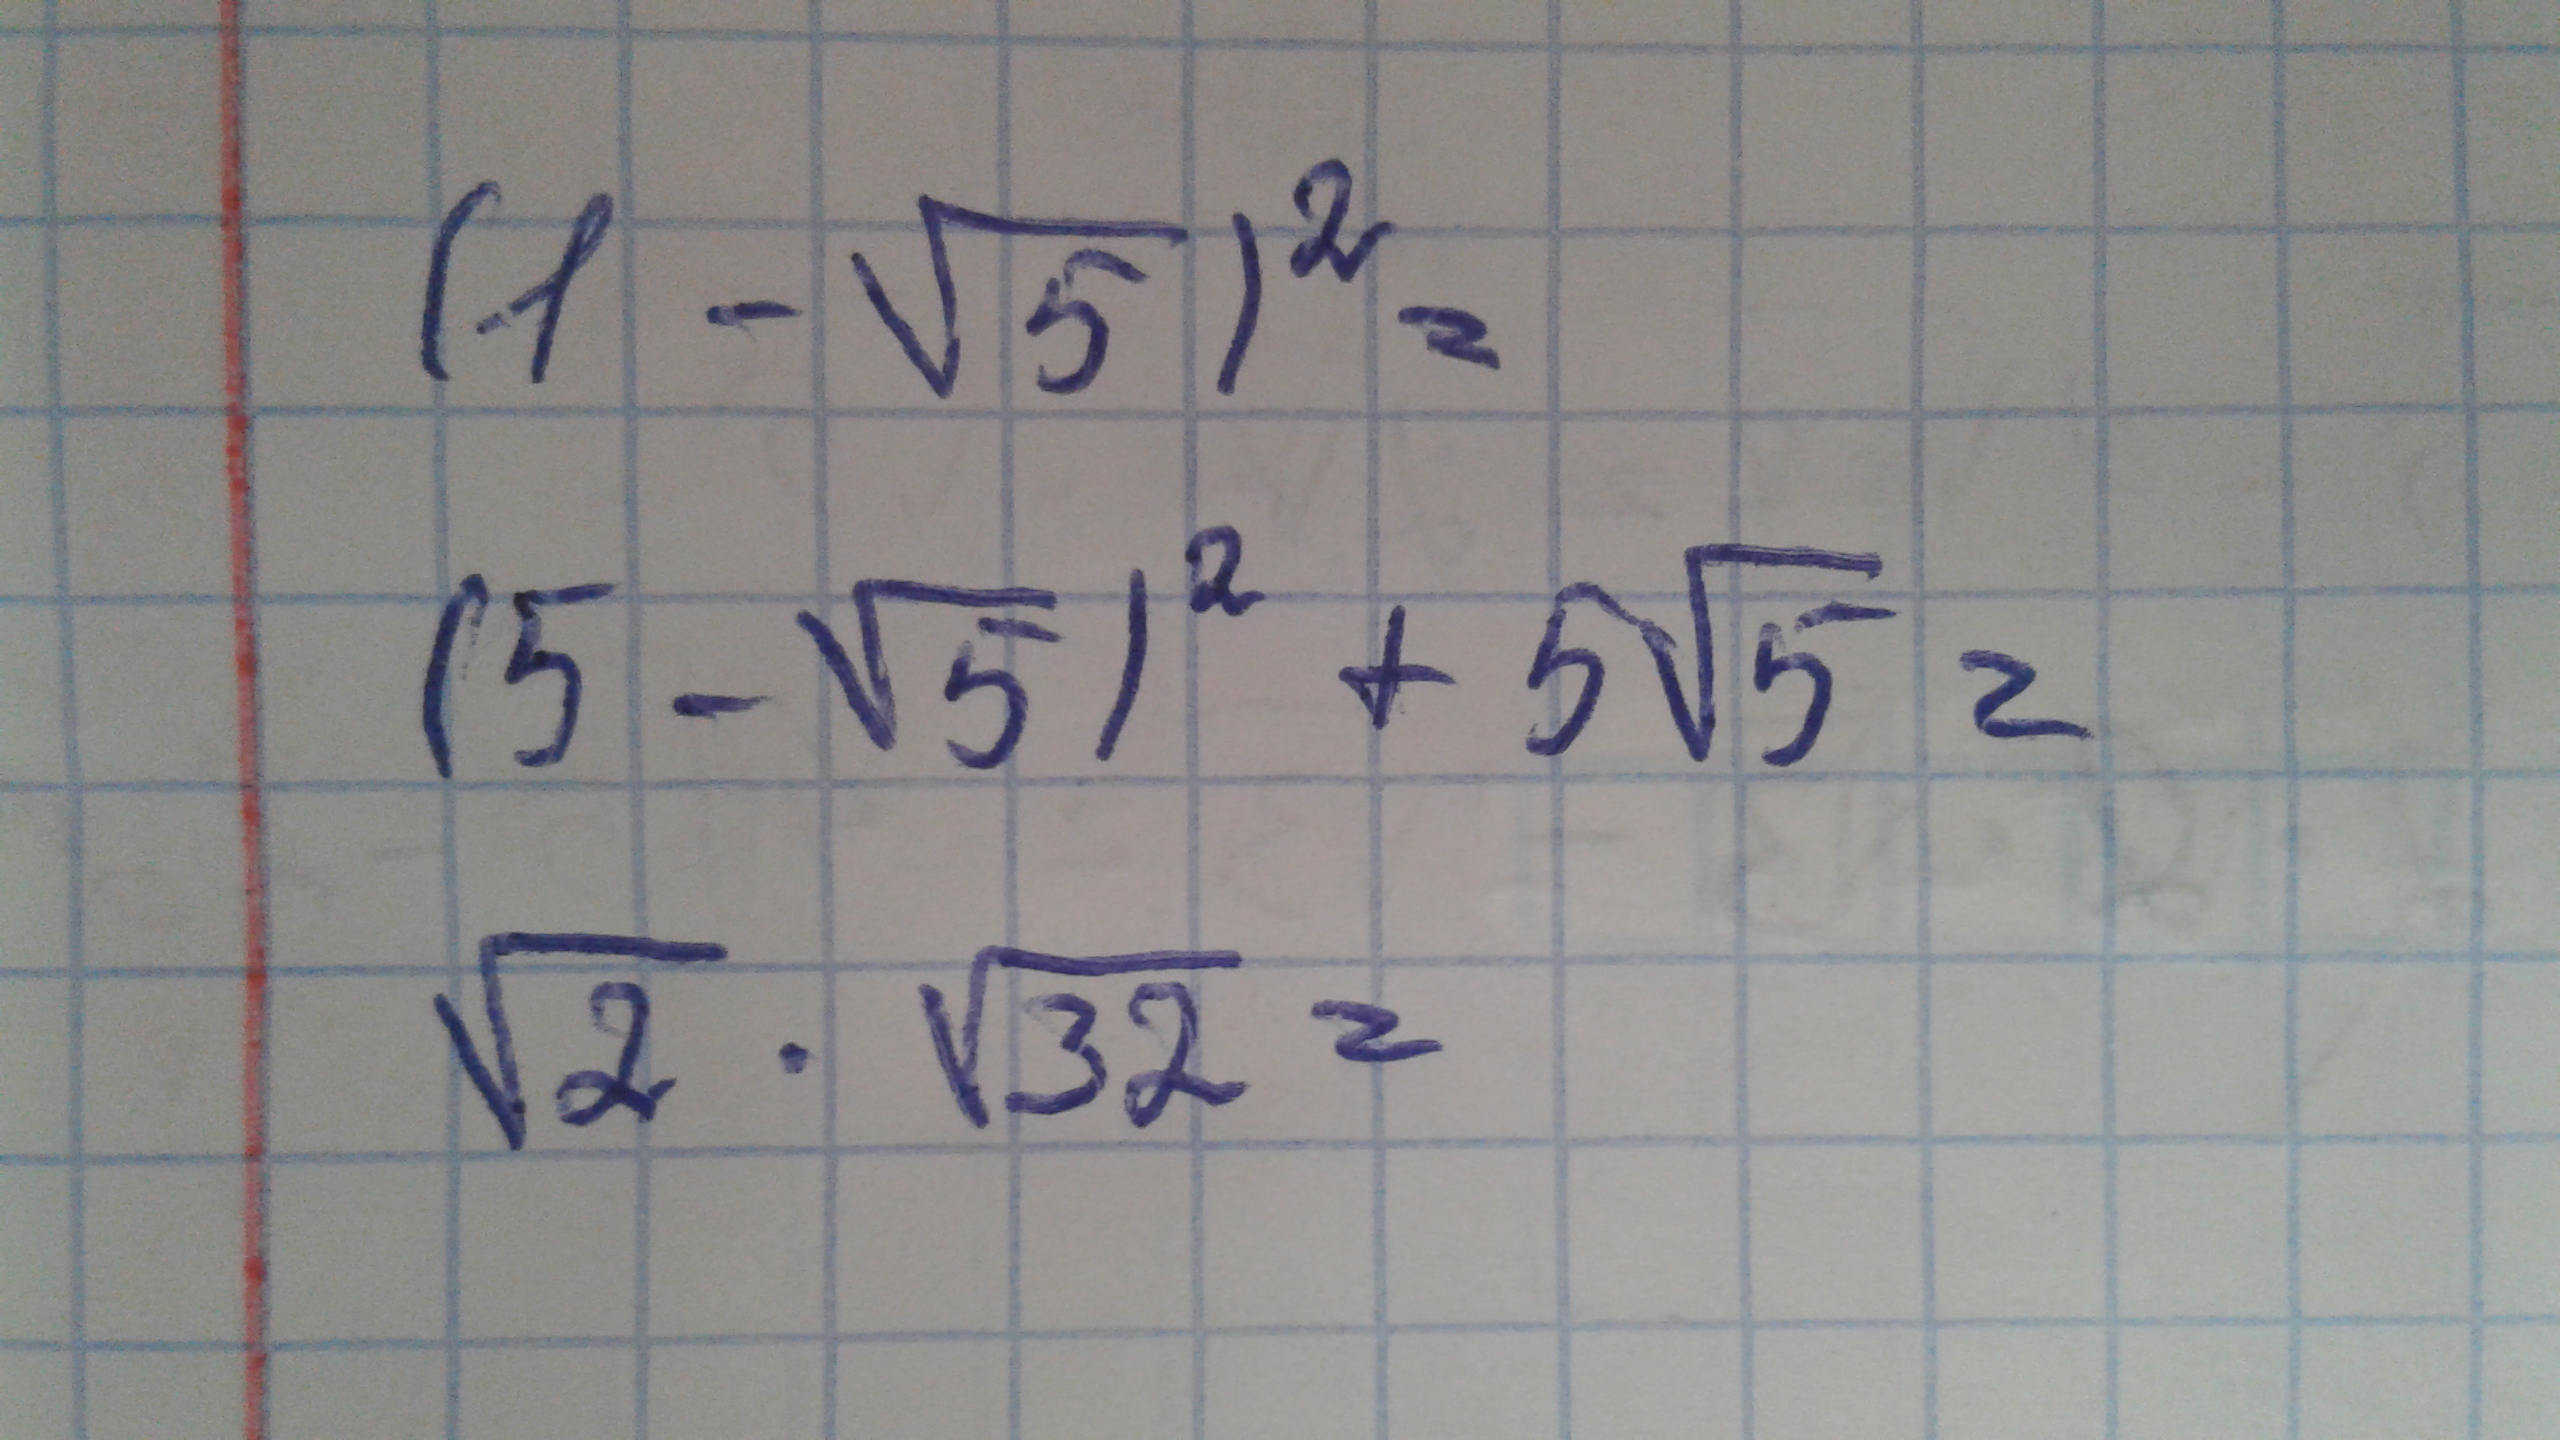 (1 - √5)² =
(5 - √5)² + 5√5 =
√2 · √32 =